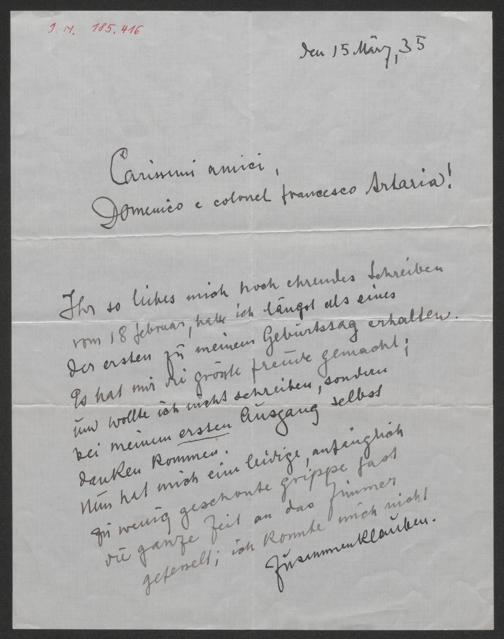 I. N. 185.416
den 15 März, 35
Carissimi amici,
Domenico e colonel francesco Artaria!
Ihr so liebes mich noch ehrendes Schreiben
vom 18 februar, habe ich längst als eines
der ersten zu meinem Geburtstag erhalten.
Es hat mir die größte freude gemacht;
und wollte ich nicht schreiben, sondern
bei meinem ersten Ausgang selbst
danken kommen.
Nun hat mich eine leidige, anfänglich
zu wenig geschonte grippe fast
die ganze Zeit an das Zimmer
gefesselt; ich konnte mich nicht
zusammenklauben.